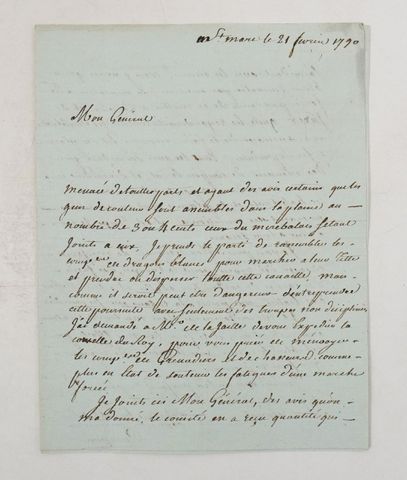 a St marc le 21 fevrier 1790
Mon Général
menacé de toutte parts et ayant des avis certains que les
gens de couleur sont assemblés dans la plaine au
nombre de 3 ou 4 cents ceux du mirebalais setant
Joints a eux. Je prends le parti de rassembler les
et dragons blancs pour marcher a leur tête
et prendre ou disperser toutte cette canaille mais
comme il seroit peut etre dangereux d'entreprendre
cette poursuite avec seulement des troupes non disciplinées
J'ai demandé a Mr de la de vous Expedier la
corvette du Roy, pour vous prier de menvoyer
les de Grenadiers et de chasseurs comme
plus en Etat de soutenir les fatigues d'une marche
forcée
Je Joints ici Mon Général, des avis qu'on
m'a donné, le comité en a reçu quantité qui